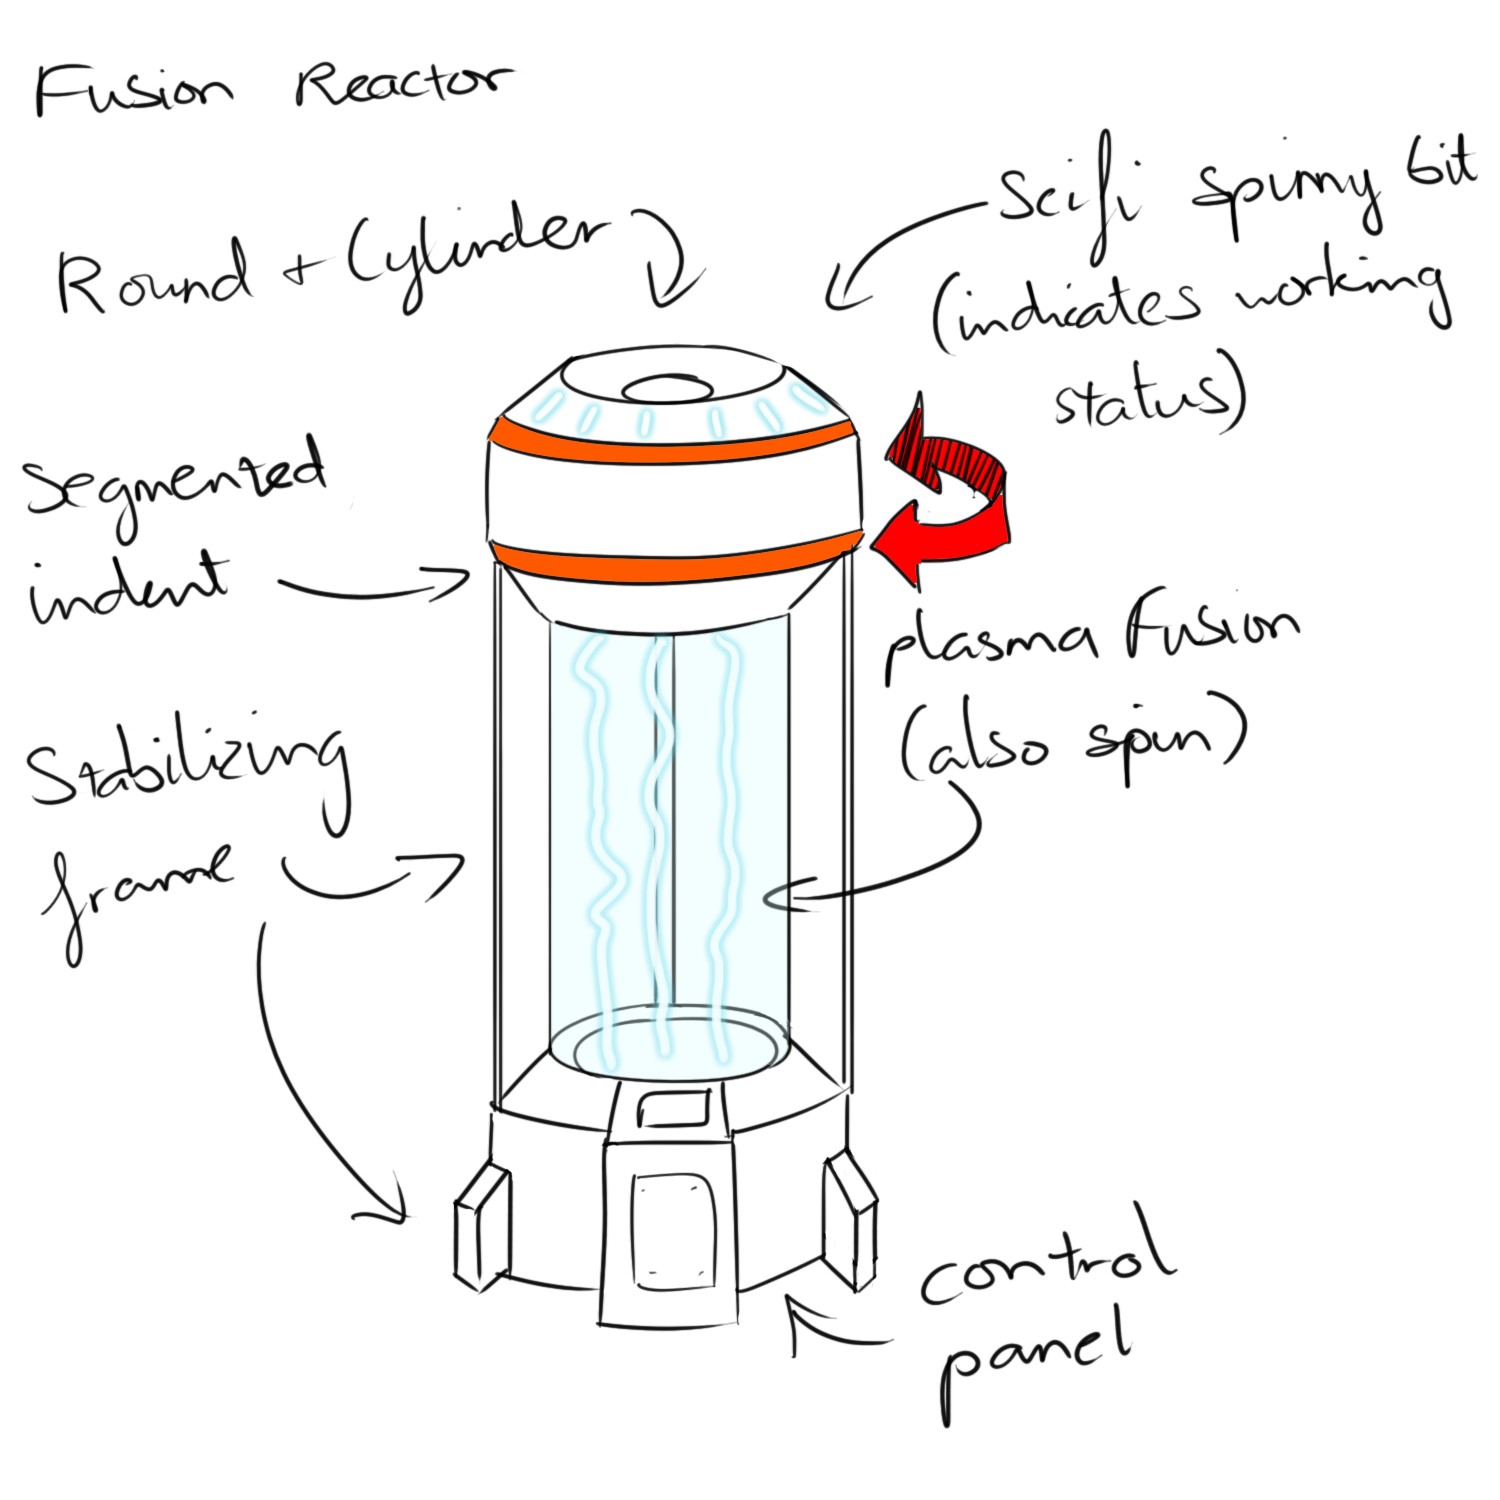 Fusion Reactor
Round + Cylinder
Scifi spinny bit
(indicates working
status)
Segmented
indent
plasma Fusion
(also spin)
Stabilizing
frame
control
panel